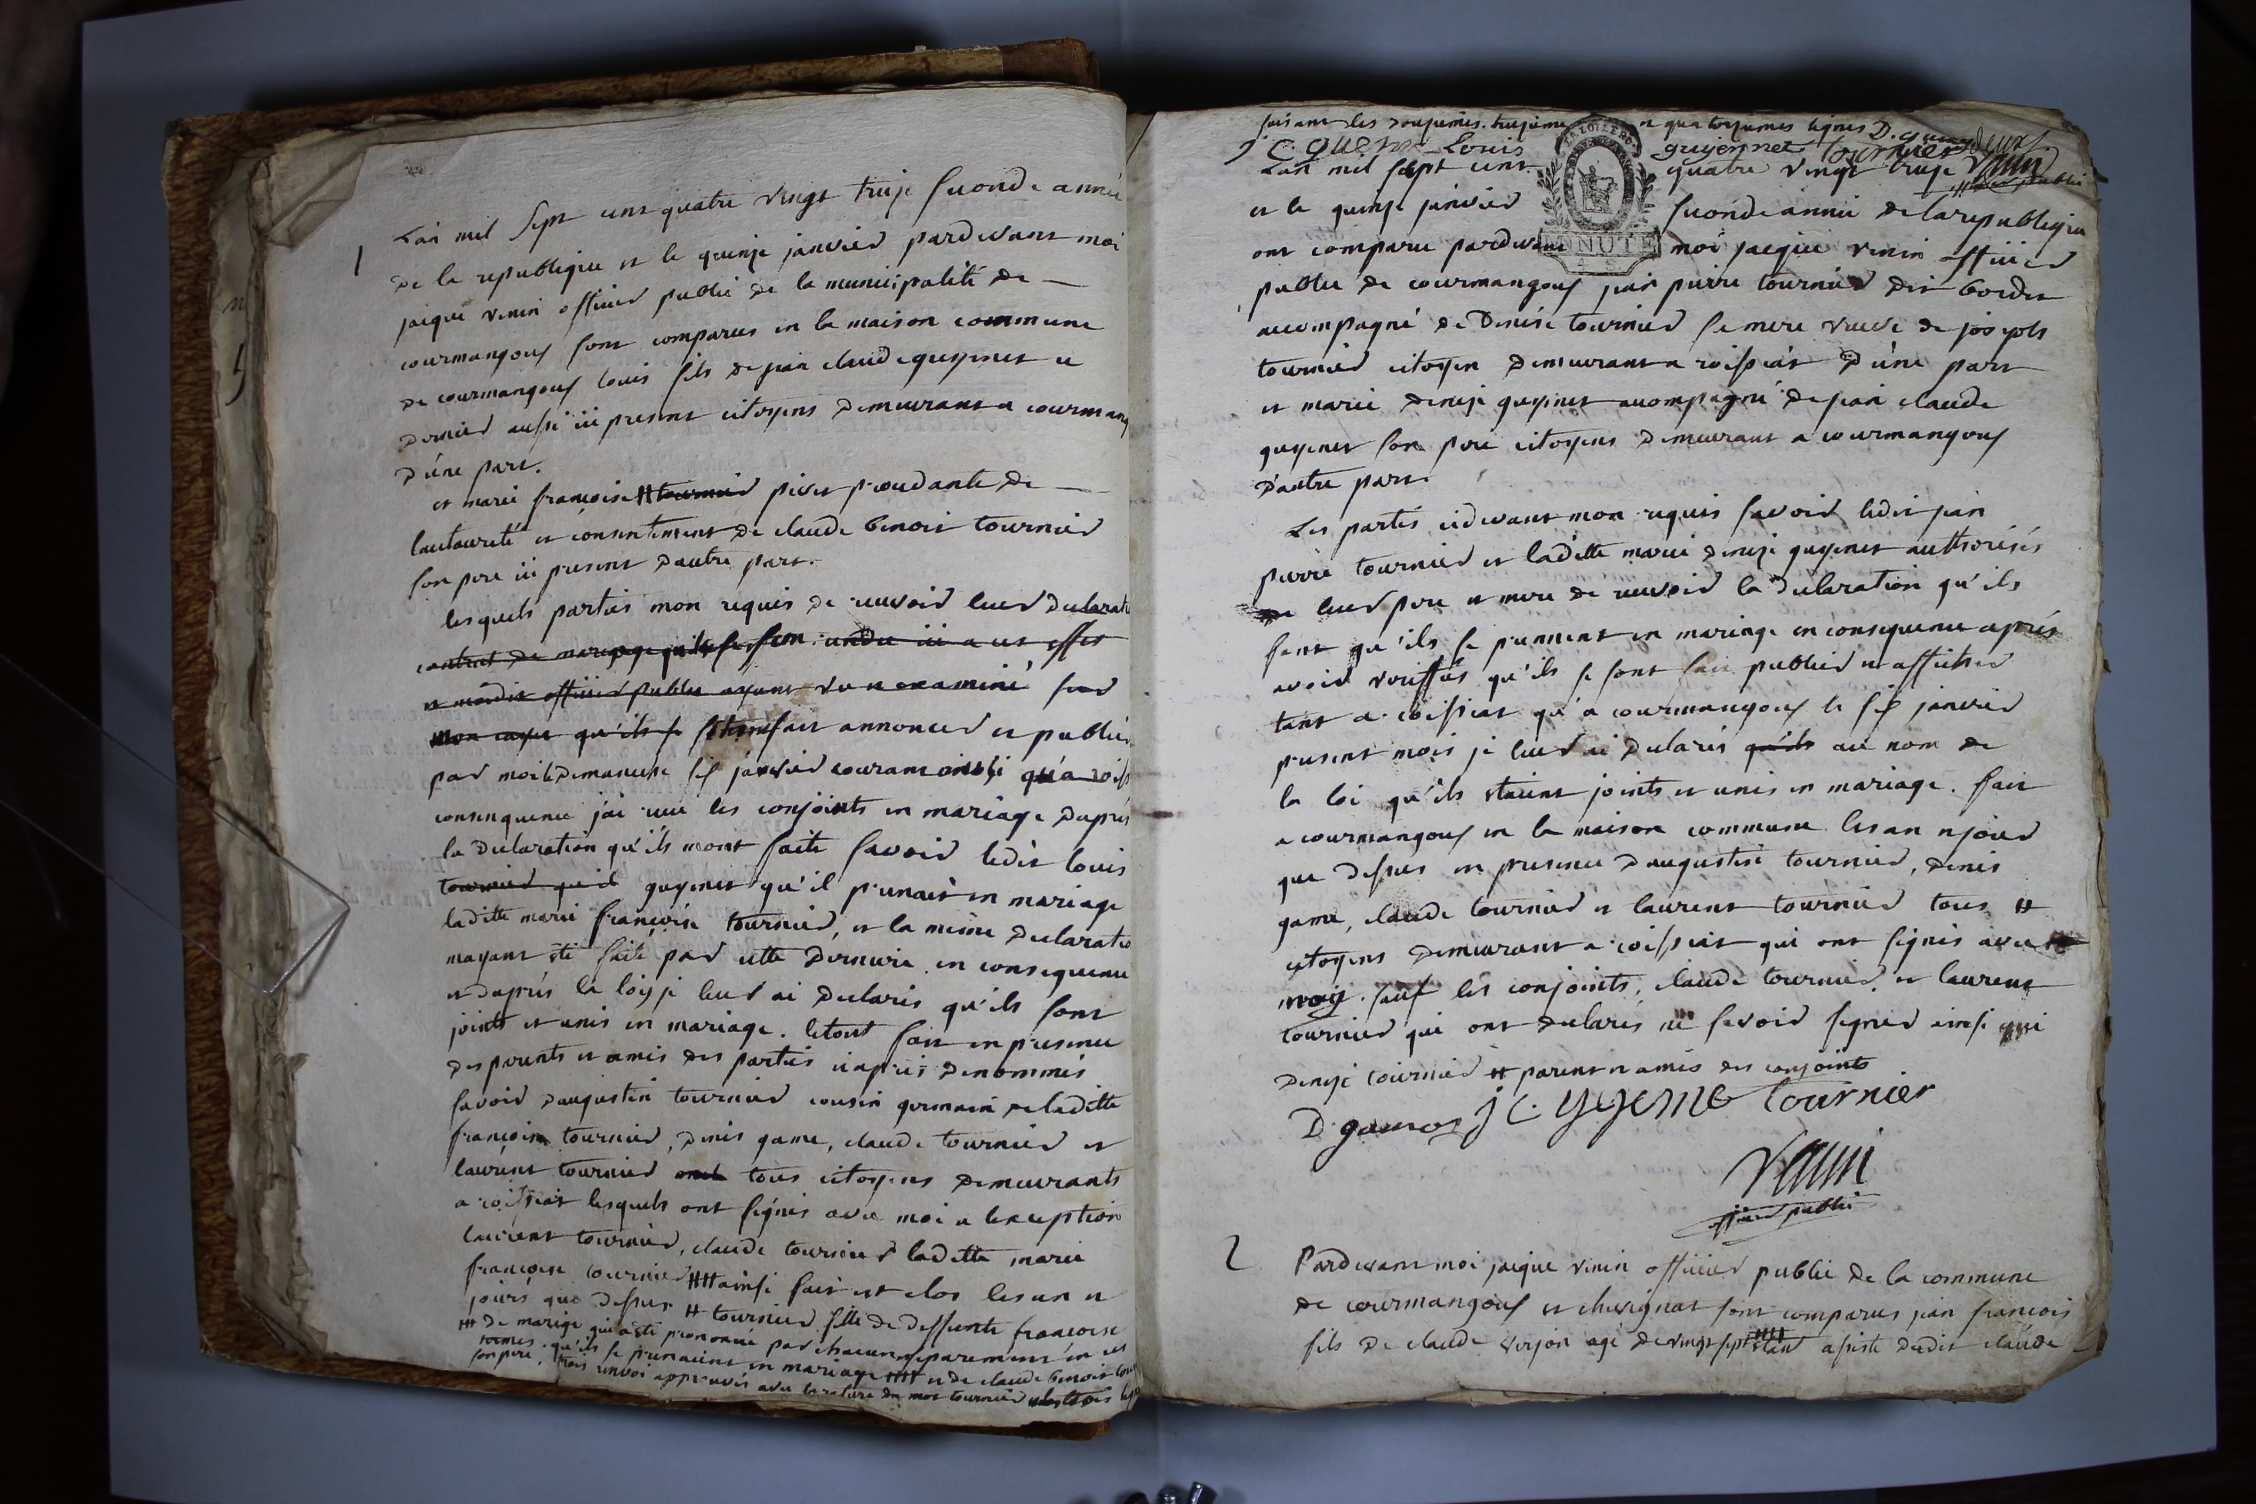 1
L'an mil sept cent quatre vingt treize seconde année
de la republique et le quinze janvier pardevant moi
jacque venin officier public de la municipalité de
courmangoux sont comparus en la maison commune
de courmangoux louis fils de jean claude guyenet ce
dernier aussi ici present citoyens demeurant a courmang
d'une part.
et marie francoise # tournier procedante de
lautaurité et consentement de claude benoit tournier
son pere ici present d'autre part.
lesquels parties mon requis de recevoir leur declarati
contrat de mariage qu'ils se sont rendu ici a cet effet
et mondit officier public ayant vu et examiné sur
mon cayer qu'ils se fait annoncer et publier
par moi le dimanche six janvier courant
consequence j'ai recu les conjoints en mariage d'aprés
la declaration qu'ils m'ont faite savoir ledit louis
tournier qu'il guyenet qu'il prenait en mariage
laditte marie francoise tournier, et la même declaratio
mayant été faite par cette derniere. en consequence
et d'aprés la loy je leur ai declarés qu'ils sont
joints et unis en mariage. le tout fait en presence
des parents et amis des parties ciaprés denommés
savoir d'augustin tournier cousin germain de laditte
francoise tournier, denis game, claude tournier et
laurent tournier tous citoyens demeurants
a roissiat lesquels ont signés avec moi a lexception
laurent tournier, claude tournier ladette marie
francoise tournier ### ainsi fait et clos les an et
jours que dessus # tournier fille de deffunte francoise
### de mariage qui a été prononcé par chacun separement en ces
termes. qu'ils se prenaient en mariage #### et de claude benoit tour
son pere, trois renvoi approuvés avec la rature du mot tournier
faisant les douziemes. treizieme quatorziemes lignes D. game
J C. guyene Louis guyennet tournier
venin
officier public
L'an mil sept cent quatre vingt treize
et le quinze janvier seconde année de la republique
MINUTE
ont comparu pardevant moi jacque venin officier
public de courmangoux jean pierre tournier dit
accompagné de Denise tournier sa mere veuve de
tournier citoyen demeurant a roissiat d'une part
et marie denise guyenet accompagné de jean claude
guyenet son pere citoyens demeurant a courmangoux
d'autre part.
Les partis cidevant mon requis savoir ledit jean
pierre tournier et laditte marie denise guyenet authorisés
de leur pere et mere de recevoir la declaration qu'ils
font qu'ils se prennent en mariage en consequence aprés
avoir veriffiés qu'ils se sont fait publier et afficher
tant a roissiat qu'a courmangoux le six janvier
present mois je leur ai declarés qu'ils au nom de
la loi qu'ils etaient joints et unis en mariage. fait
a courmangoux en la maison commune les an et jour
que dessus en presence d'augustin tournier, denis
game, claude tournier et laurent tournier tous #
citoyens demeurant a roissiat qui ont signés avec
moy. sauf les conjoints, claude tournier et laurent
tournier qui ont declarés ne savoir signer ainsi que
denise tournier # parent et amis des conjoints
D. game J C. guyene tournier
venin
officier public
2
Pardevant moi jacque venin officier public de la commune
de courmangoux et chevignat sont comparus jean francois
fils de claude verjon agé de vingt sept assisté dudit claude